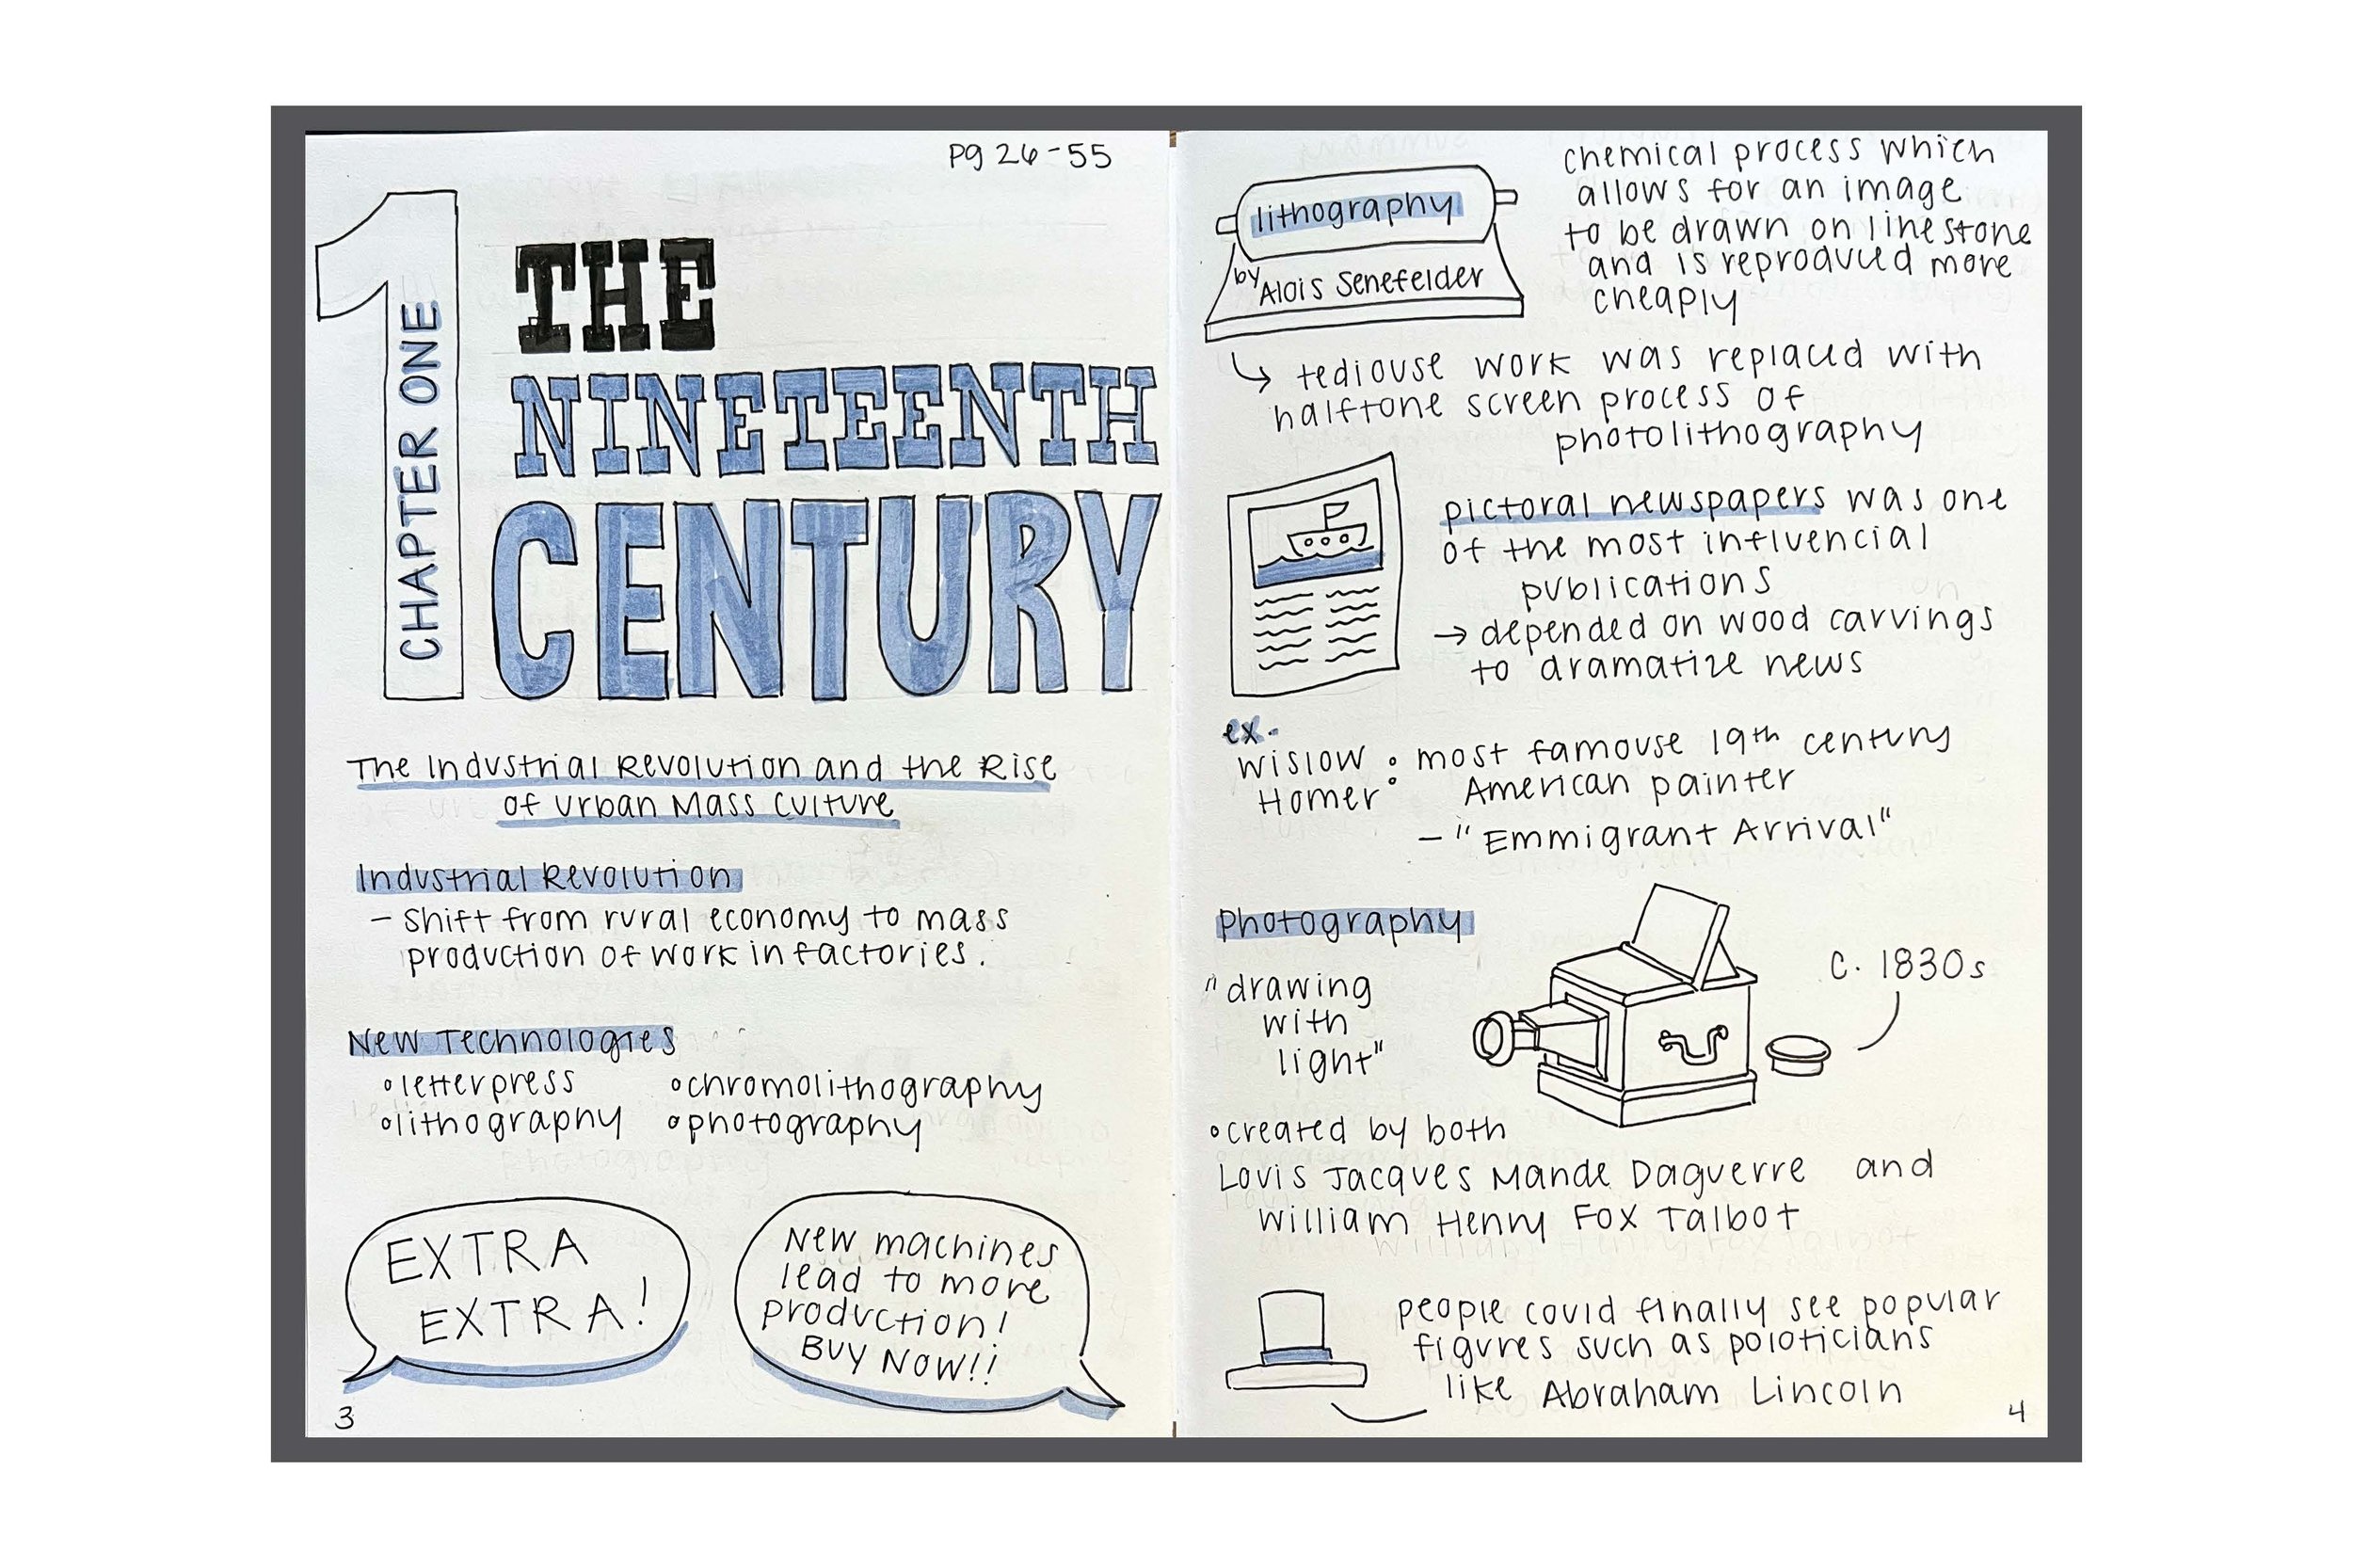 pg 26-55
1
CHAPTER ONE
THE
NINETEENTH
CENTURY
The Industrial Revolution and the Rise
of Urban Mass Culture
Industrial Revolution
- Shift from rural economy to mass
production of work in factories.
New Technologies
•letterpress •chromolithography
•lithography •photography
EXTRA
EXTRA!
New machines
lead to more
production!
BUY NOW!!
3
lithography
by Alois Senefelder
chemical process which
allows for an image
to be drawn on linestone
and is reproduced more
cheaply
↳ tediouse work was replaced with
halftone screen process of
photolithography
pictoral newspapers was one
of the most influencial
publications
→ depended on wood carvings
to dramatize news
ex.
Wislow : most famouse 19th century
Homer American painter
- "Emmigrant Arrival"
Photography
"drawing
with
light"
C. 1830s
•created by both
Louis Jacques Mande Daguerre and
William Henry Fox Talbot
people could finally see popular
figures such as poloticians
like Abraham Lincoln
4